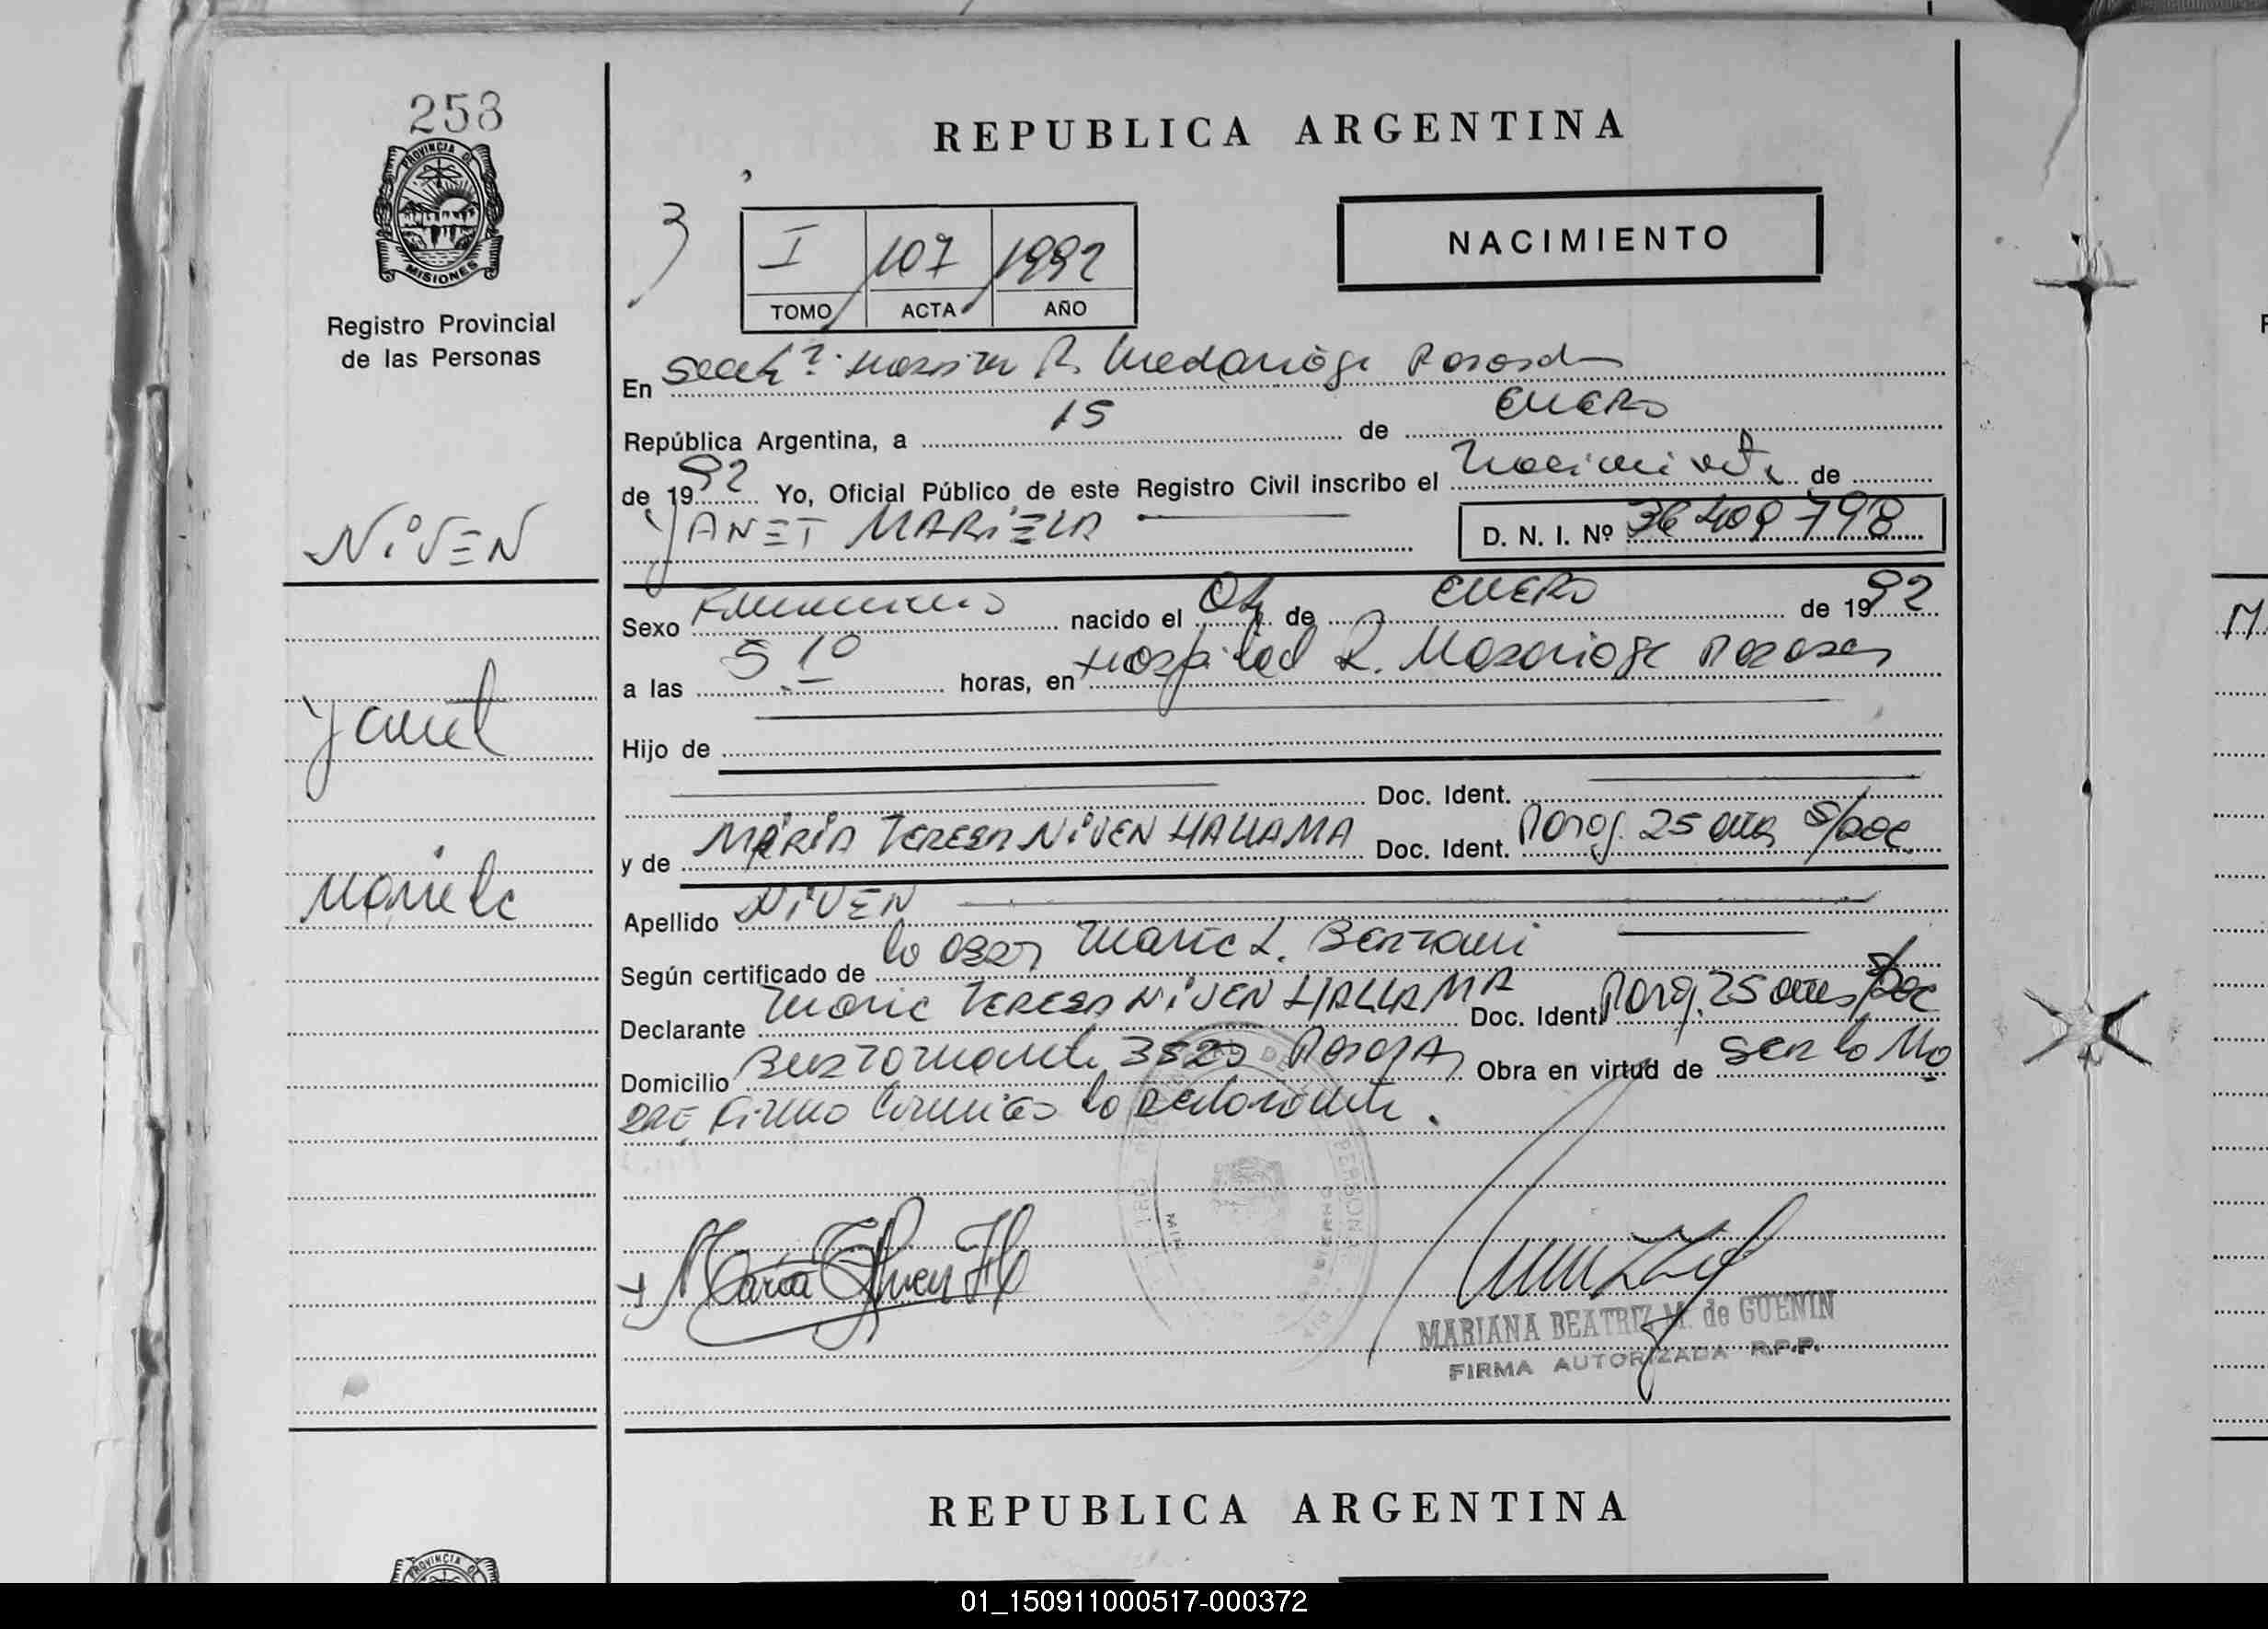 258
PROVINCIA DE
MISIONES
Registro Provincial
de las Personas
NiVEN
Yanet
Mariela
REPUBLICA ARGENTINA
3
I 107 1992
TOMO ACTA AÑO
NACIMIENTO
En R. Madariaga Posadas
República Argentina, a 15 de ENERO
de 1992 Yo, Oficial Público de este Registro Civil inscribo el Nacimiento de
YANET MARiELA D. N. I. Nº 36409798
Sexo Femenino nacido el 04 de ENERO de 1992
a las 5.10 horas, en Hospital R. Madariaga Posadas
Hijo de
Doc. Ident.
y de MARiA TERESA NiVEN HALLAMA Doc. Ident. Parag. 25 años S/Doc.
Apellido NiVEN
Según certificado de la Obst. Maria L.
Declarante Maria TERESA NiVEN HALLAMA Doc. Ident. Parag. 25 años S/Doc
Domicilio Posadas Obra en virtud de ser la Ma
dre, Firma conmigo la declarante.
Maria T Niven H
MARIANA BEATRIZ M. de GUENIN
FIRMA AUTORIZADA R.P.P.
REPUBLICA ARGENTINA
PROVINCIA DE
01_150911000517-000372